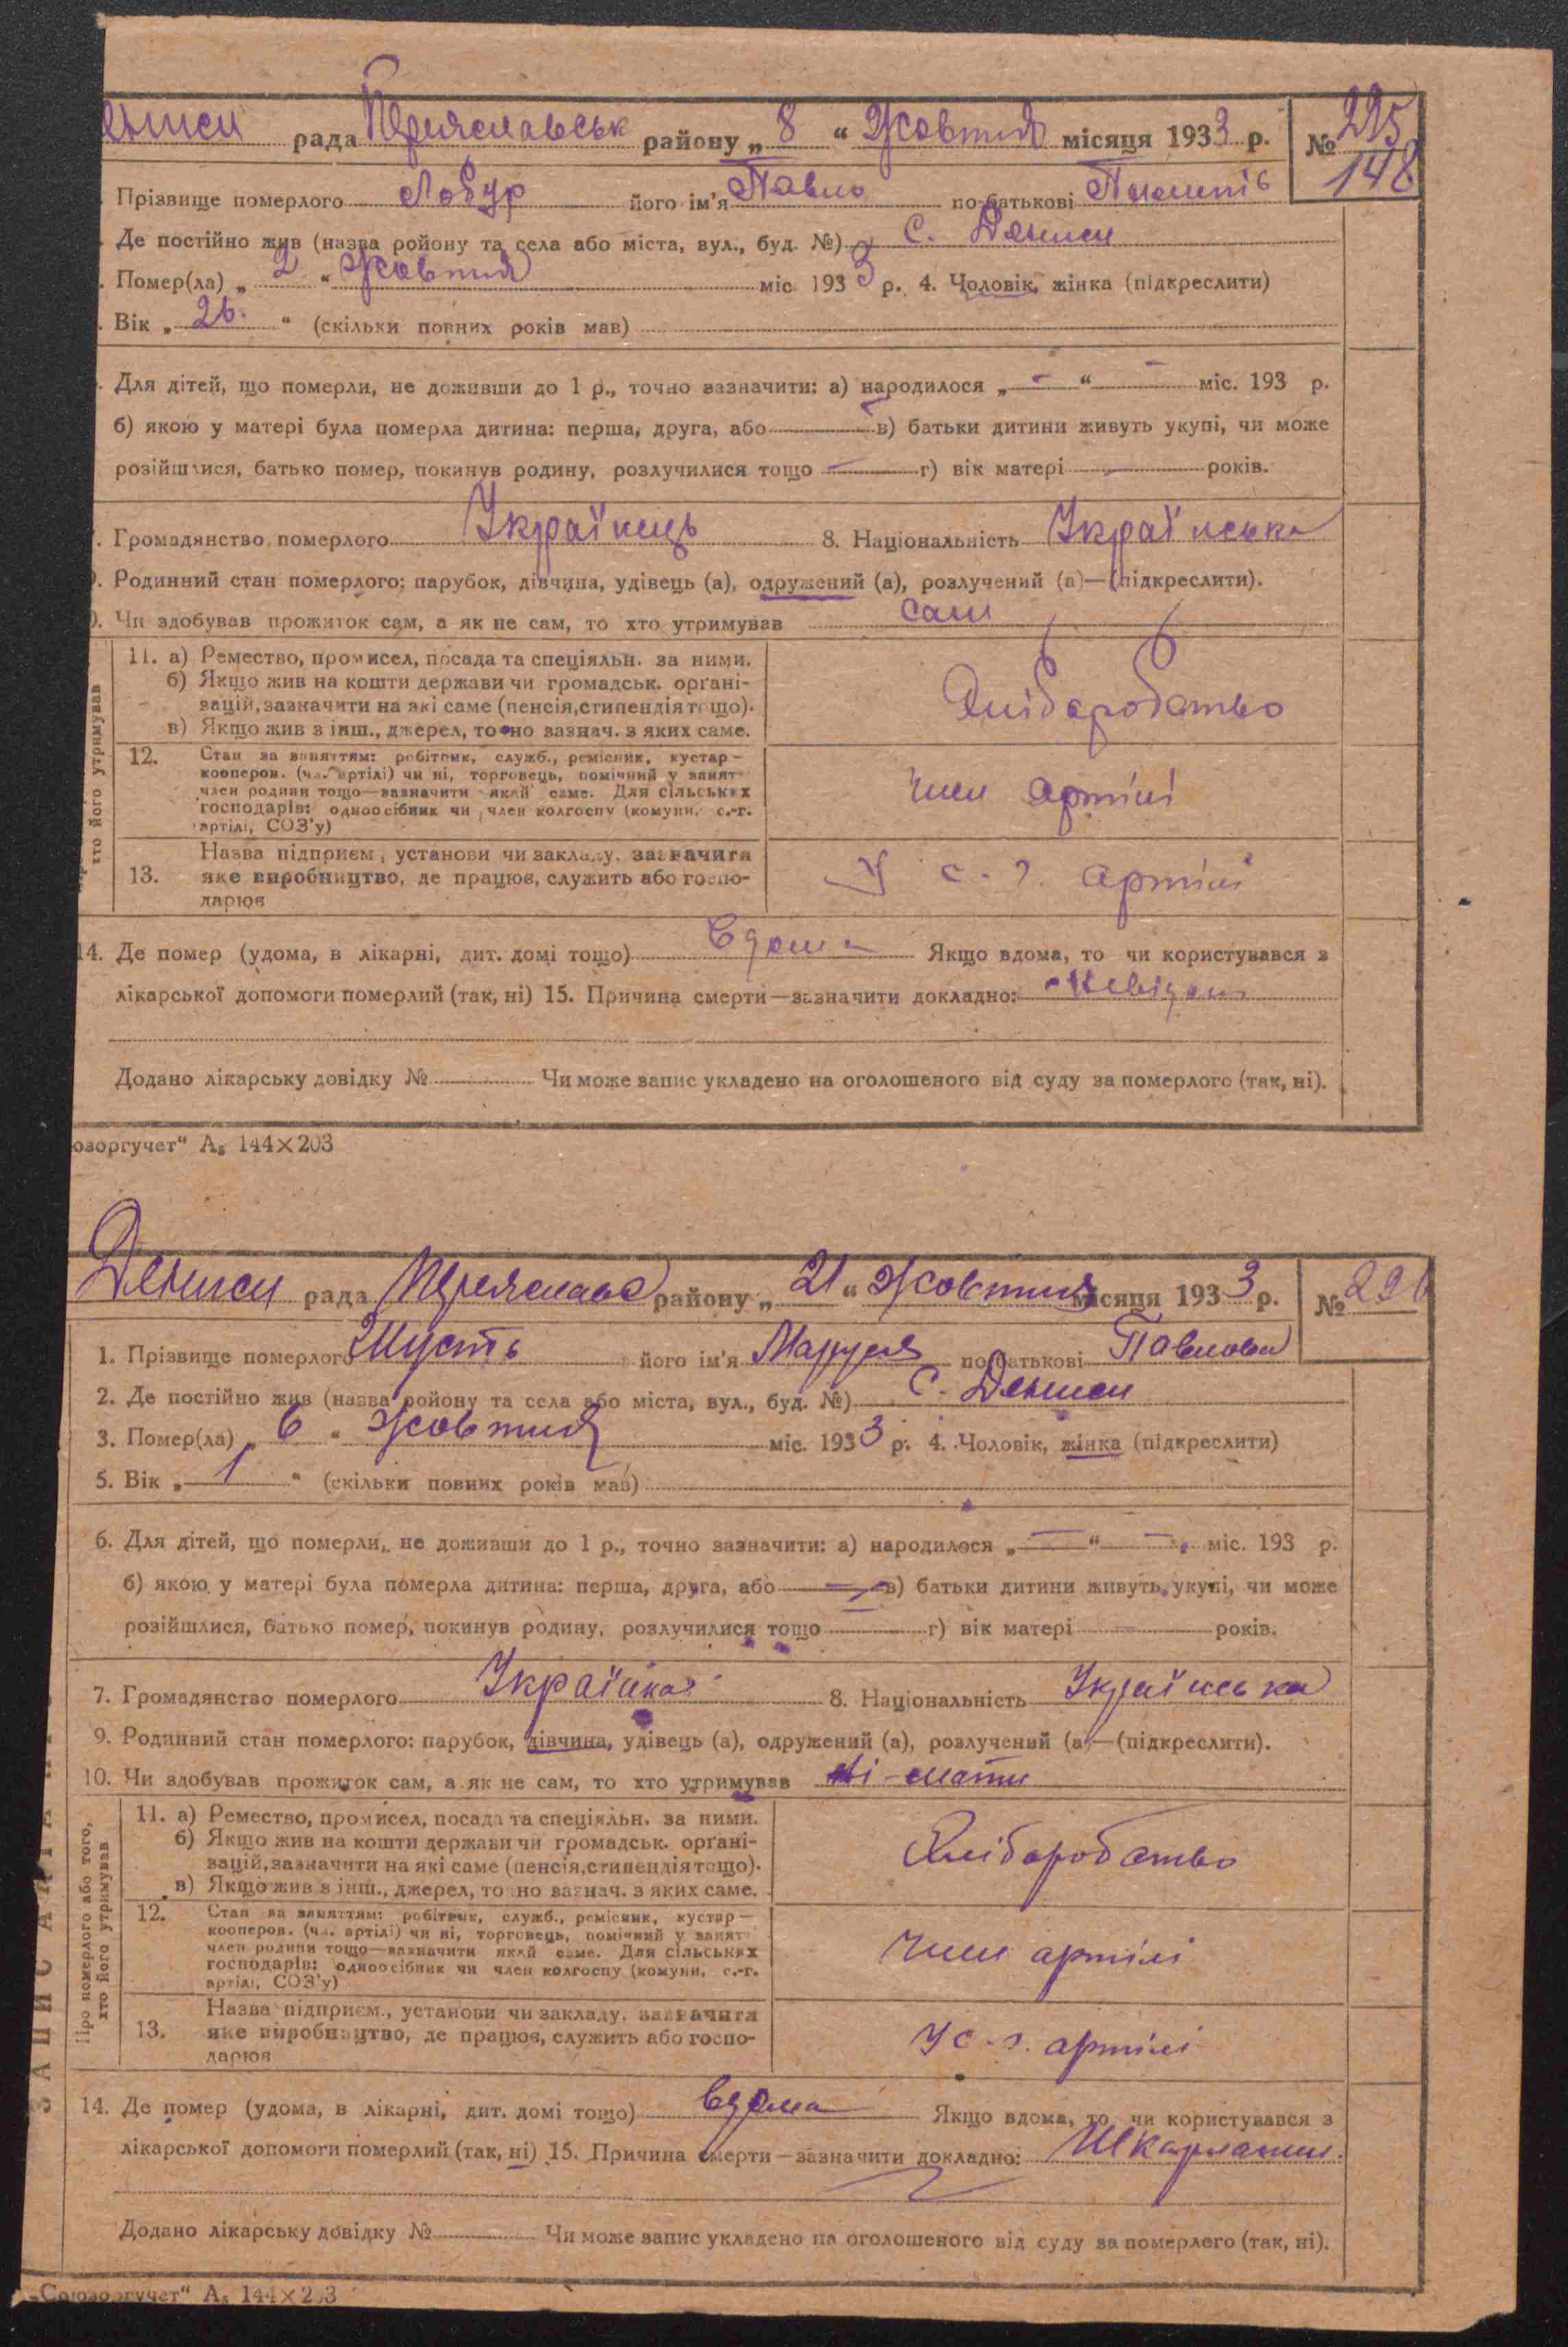 рада Переяславськ району „ 8 “ Жовтня місяця 1933 р. № 295
148
Прізвище померлого Лобур його ім'я Павло по-батькові
Де постійно жив (назва ройону та села або міста, вул., буд. №) с. Дениси
Помер(ла) „ 2 “ Жовтня міс. 1933 р. 4. Чоловік, жінка (підкреслити)
Вік „ 26. “ (скільки повних років мав)
Для дітей, що померли, не доживши до 1 р., точно зазначити: а) народилося „ — “ — міс. 193 р.
б) якою у матері була померла дитина: перша, друга, або — в) батьки дитини живуть укупі, чи може
розійшлися, батько помер, покинув родину, розлучилися тощо — г) вік матері — років.
Громадянство померлого Українець 8. Національність Українська
Родинний стан померлого: парубок, дівчина, удівець (а), одружений (а), розлучений (а)—(підкреслити).
Чи здобував прожиток сам, а як не сам, то хто утримував сам
хто його утримував
11. а) Ремество, промисел, посада та спеціяльн. за ними.
б) Якщо жив на кошти держави чи громадськ. орґані-
зацій, зазначити на які саме (пенсія, стипендія тощо).
в) Якщо жив з інш., джерел, точно зазнач. з яких саме.
Хліборобство
12. Стан за заняттям: робітник, служб., ремісник, кустар—
кооперов. (чл. артілі) чи ні, торговець, помічний у занят
член родини тощо—зазначити який саме. Для сільських
господарів: одноосібник чи член колгоспу (комуни, с.-г.
артілі, СОЗ'у)
член артілі
13. Назва підприєм., установи чи закладу, зазначити
яке виробництво, де працює, служить або госпо-
дарює
У с.-г. артілі
14. Де помер (удома, в лікарні, дит. домі тощо) Вдома Якщо вдома, то чи користувався з
лікарської допомоги померлий (так, ні) 15. Причина смерти—зазначити докладно: Невідом
Додано лікарську довідку № Чи може запис укладено на оголошеного від суду за померлого (так, ні).
озоргучет“ А₅ 144×203
Дениси рада Переяславс району „ 21 “ Жовтня місяця 1933 р. № 296
1. Прізвище померлого Шусть його ім'я Маруся по-батькові Павлова
2. Де постійно жив (назва ройону та села або міста, вул., буд. №) с. Дениси
3. Помер(ла) „ 6 “ Жовтня міс. 1933 р. 4. Чоловік, жінка (підкреслити)
5. Вік „ 1 “ (скільки повних років мав)
6. Для дітей, що померли, не доживши до 1 р., точно зазначити: а) народилося „ — “ — міс. 193 р.
б) якою у матері була померла дитина: перша, друга, або — в) батьки дитини живуть укупі, чи може
розійшлися, батько помер, покинув родину, розлучилися тощо — г) вік матері — років.
7. Громадянство померлого Українка 8. Національність Українська
9. Родинний стан померлого: парубок, дівчина, удівець (а), одружений (а), розлучений (а)—(підкреслити).
10. Чи здобував прожиток сам, а як не сам, то хто утримував Ні - мати
Про померлого або того,
хто його утримував
11. а) Ремество, промисел, посада та спеціяльн. за ними.
б) Якщо жив на кошти держави чи громадськ. орґані-
зацій, зазначити на які саме (пенсія, стипендія тощо).
в) Якщо жив з інш., джерел, точно зазнач. з яких саме.
Хліборобство
12. Стан за заняттям: робітник, служб., ремісник, кустар—
кооперов. (чл. артілі) чи ні, торговець, помічний у занят
член родини тощо—зазначити який саме. Для сільських
господарів: одноосібник чи член колгоспу (комуни, с.-г.
артілі, СОЗ'у)
член артілі
13. Назва підприєм., установи чи закладу, зазначити
яке виробництво, де працює, служить або госпо-
дарює
У с.-г. артілі
14. Де помер (удома, в лікарні, дит. домі тощо) вдома Якщо вдома, то чи користувався з
лікарської допомоги померлий (так, ні) 15. Причина смерти—зазначити докладно: Шкарлатин.
Додано лікарську довідку № Чи може запис укладено на оголошеного від суду за померлого (так, ні).
„Союзоргучет“ А₅ 144×203